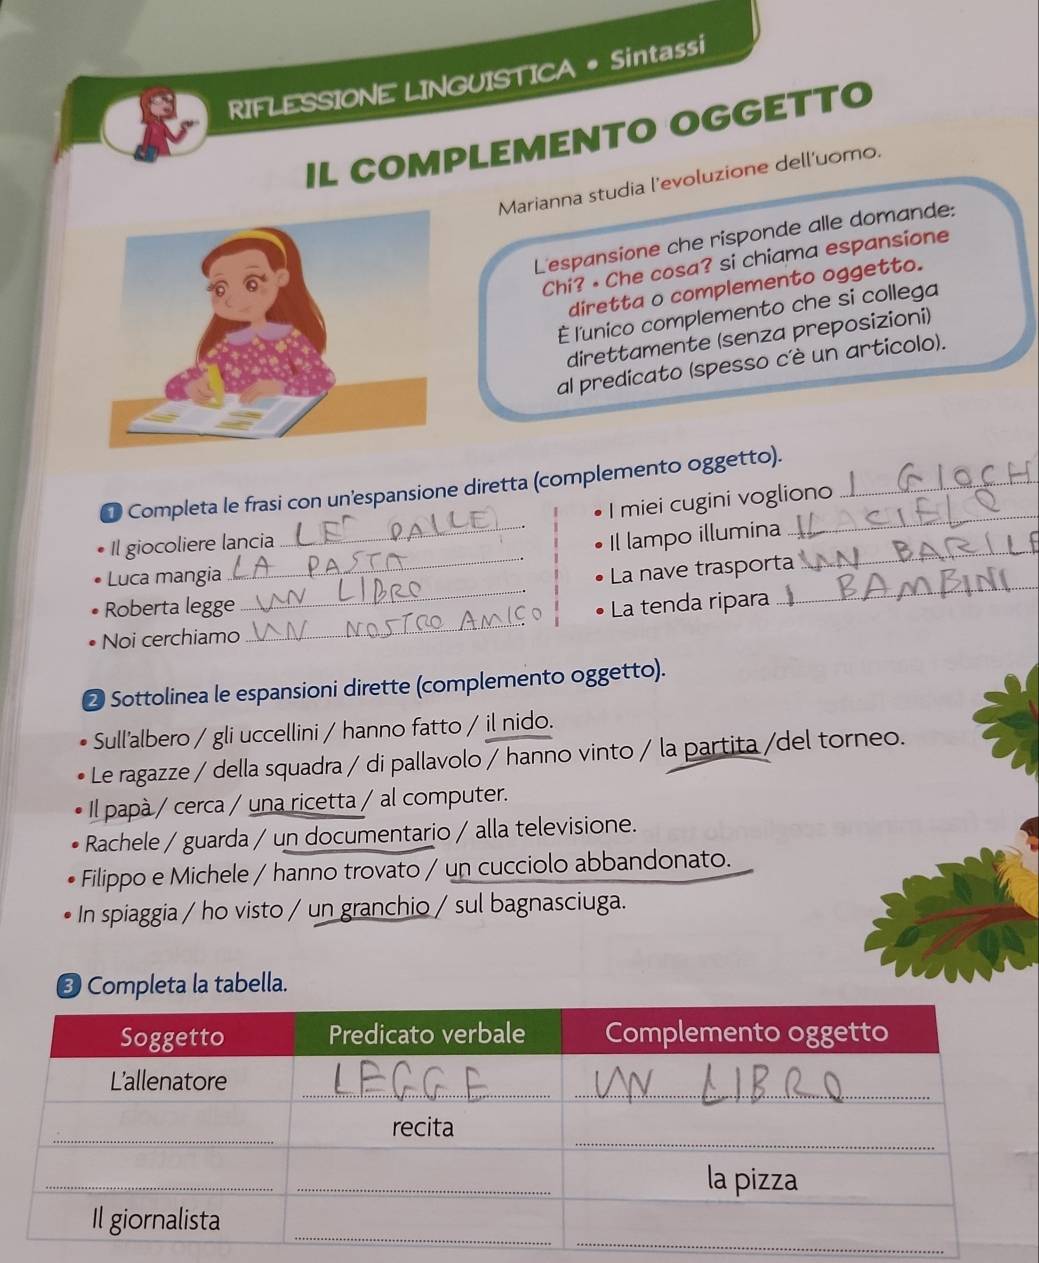 RIFLESSIONE LINGUISTICA • Sintassi
IL COMPLEMENTO OGGETTO
Marianna studia l'evoluzione dell'uomo.
L'espansione che risponde alle domande:
Chi? • Che cosa? si chiama espansione
diretta o complemento oggetto.
È l'unico complemento che si collega
direttamente (senza preposizioni)
al predicato (spesso c'è un articolo).
1 Completa le frasi con un'espansione diretta (complemento oggetto).
• Il giocoliere lancia LE PALLE.
• Luca mangia LA PASTA.
• Roberta legge UN LIBRO.
• Noi cerchiamo UN NOSTRO AMICO.
• I miei cugini vogliono I GIOCH
• Il lampo illumina IL CIELO
• La nave trasporta UN BARILE
• La tenda ripara I BAMBINI
2 Sottolinea le espansioni dirette (complemento oggetto).
• Sull'albero / gli uccellini / hanno fatto / il nido.
• Le ragazze / della squadra / di pallavolo / hanno vinto / la partita /del torneo.
• Il papà / cerca / una ricetta / al computer.
• Rachele / guarda / un documentario / alla televisione.
• Filippo e Michele / hanno trovato / un cucciolo abbandonato.
• In spiaggia / ho visto / un granchio / sul bagnasciuga.
3 Completa la tabella.
Soggetto Predicato verbale Complemento oggetto
L'allenatore LEGGE UN LIBRO
recita
la pizza
Il giornalista